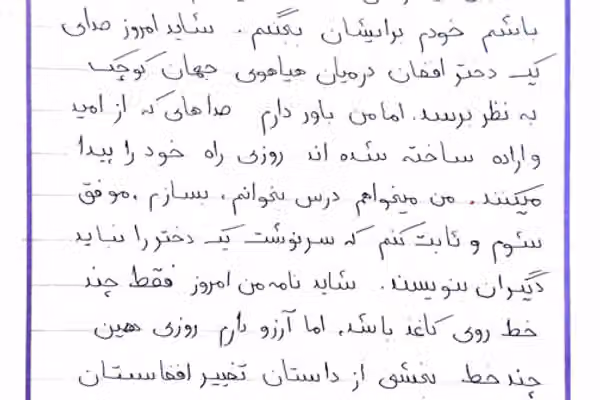 باشم خودم برایشان بجنگم. شاید امروز صدای
یک دختر افغان درمیان هیاهوی جهان کوچک
به نظر برسد. اما من باور دارم صداهای که از امید
و اراده ساخته شده اند روزی راه خود را پیدا
میکنند. من میخواهم درس بخوانم، بسازم، موفق
شوم و ثابت کنم که سرنوشت یک دختر را نباید
دگیران بنویسند. شاید نامه من امروز فقط چند
خط روی کاغذ باشد، اما آرزو دارم روزی همین
چند خط بخشی از داستان تغییر افغانستان